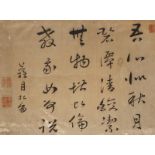 吾心似秋月
碧潭清皎潔
無物堪比倫
教我如何說